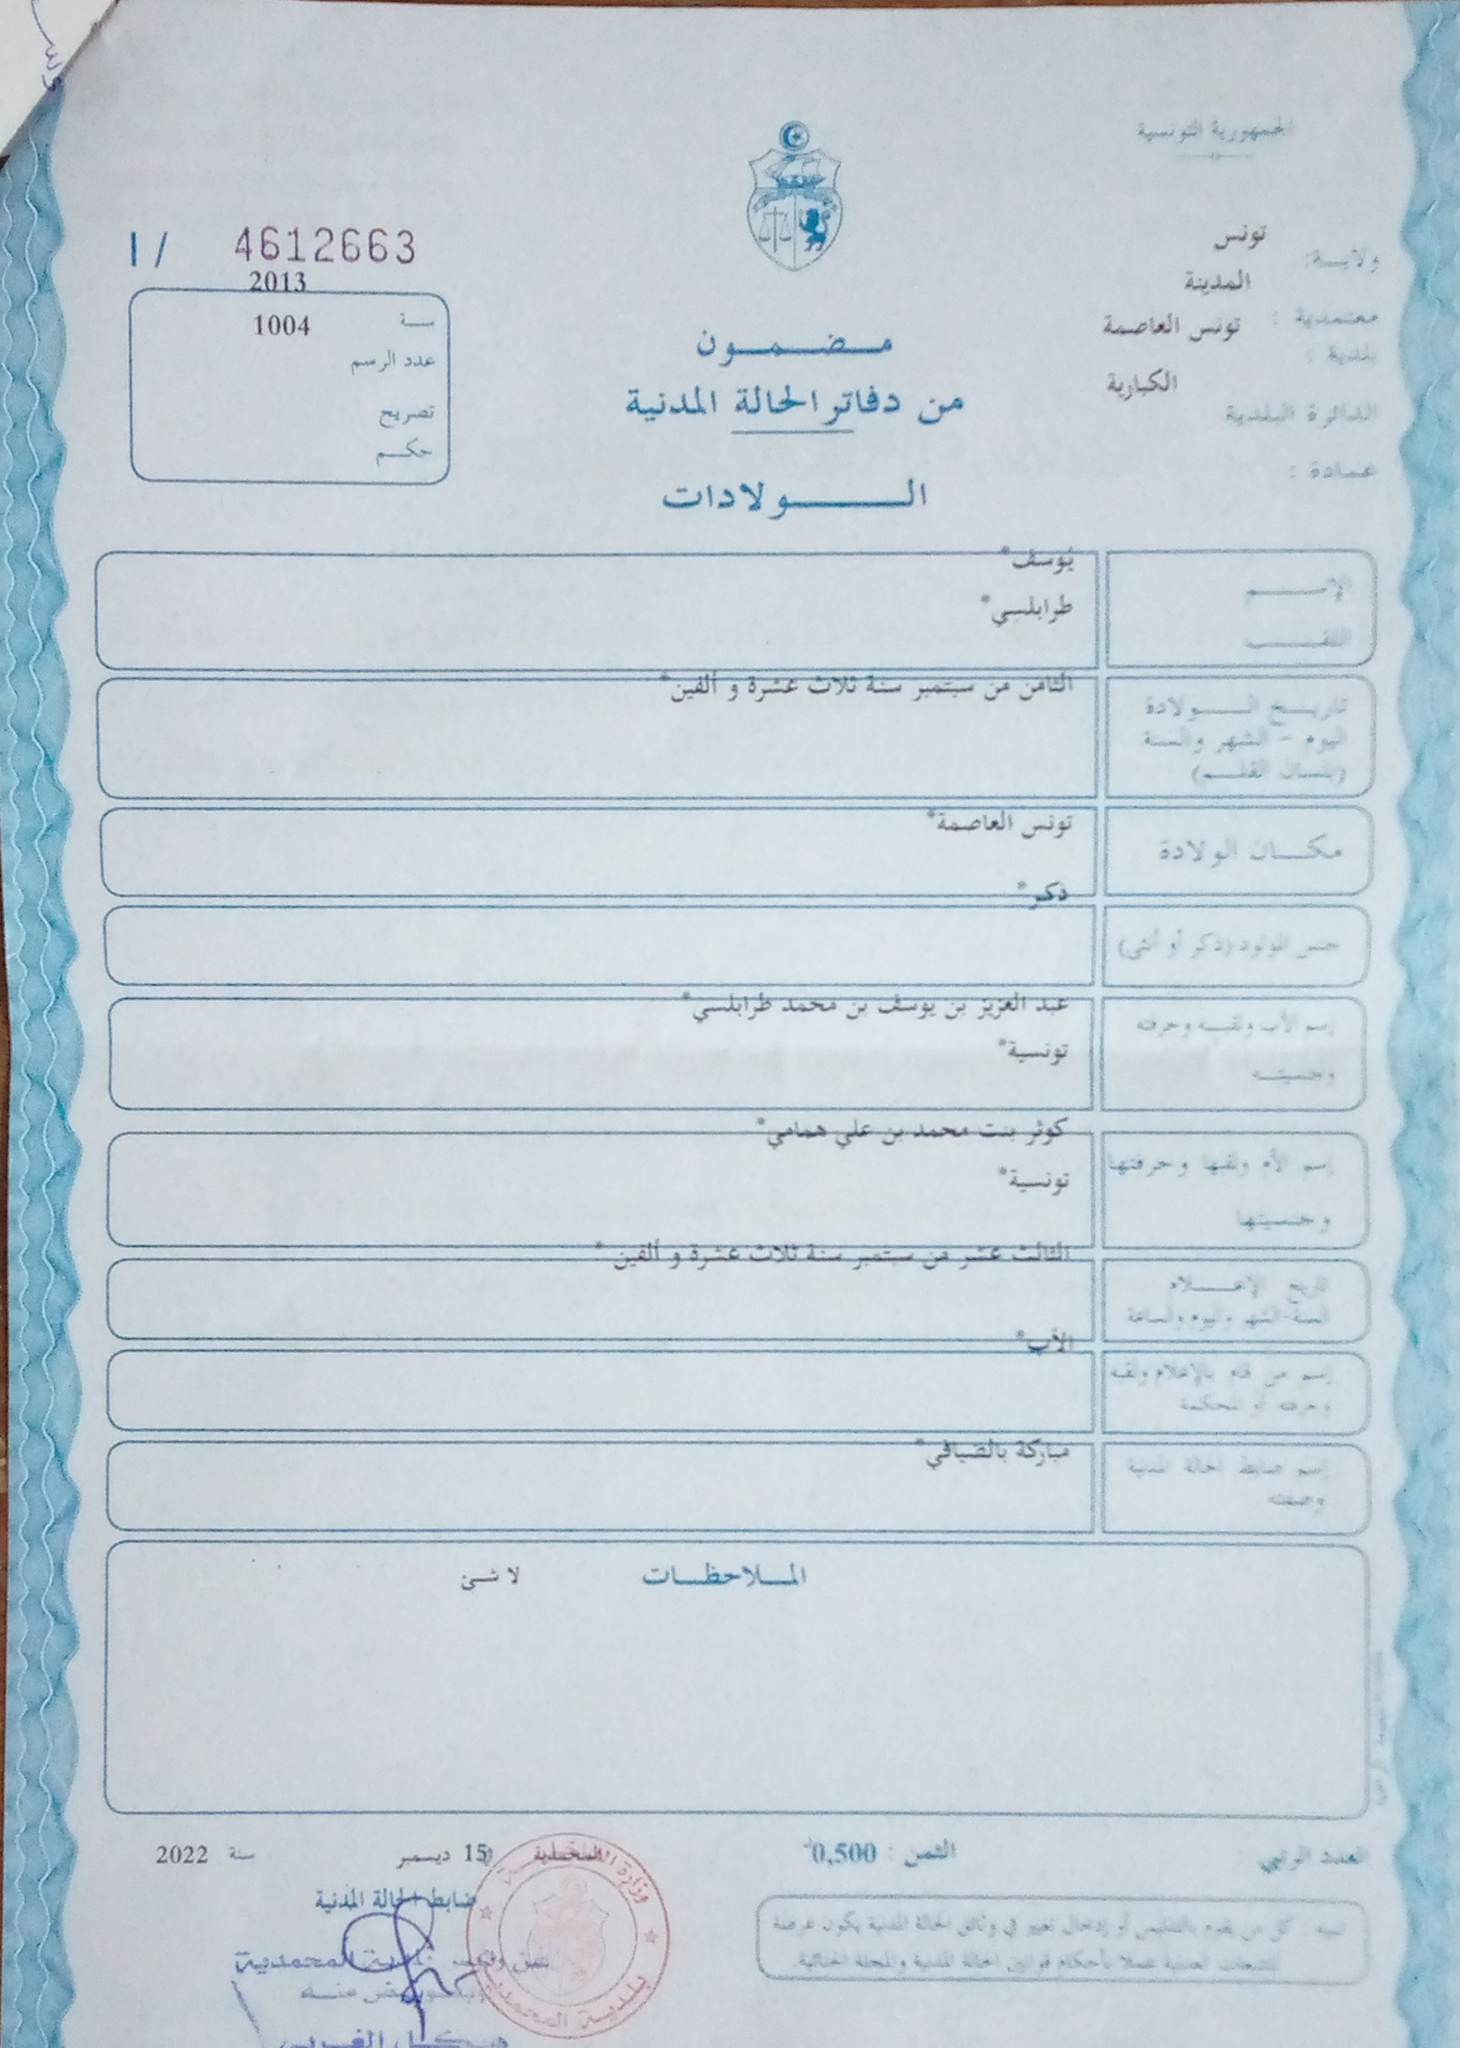 الجمهورية التونسية
ولايـة: تونس
معتمدية : المدينة
بلدية : تونس العاصمة
الدائرة البلدية الكبارية
عمادة :
4612663 / I
2013
سنة 1004
عدد الرسم
تصريح
حكم
مضمون
من دفاتر الحالة المدنية
الولادات
الإسم يوسف*
اللقب طرابلسي*
تاريخ الولادة الثامن من سبتمبر سنة ثلاث عشرة و ألفين*
اليوم - الشهر والسنة
(بلسان القلم)
مكان الولادة تونس العاصمة*
جنس المولود (ذكر أو أنثى) ذكر*
إسم الأب ولقبه وحرفته عبد العزيز بن يوسف بن محمد طرابلسي*
وجنسيته تونسية*
إسم الأم ولقبها وحرفتها كوثر بنت محمد بن علي همامي*
وجنسيتها تونسية*
تاريخ الإعلام الثالث عشر من سبتمبر سنة ثلاث عشرة و ألفين *
السنة-الشهر واليوم والساعة
إسم من قام بالإعلام ولقبه الأب*
وحرفته أو المحكمة
إسم ضابط الحالة المدنية مباركة بالضيافي*
وصفته
الملاحظات لا شئ
العدد الرتبي
الثمن : 0,500د
15 ديسمبر سنة 2022
ضابط الحالة المدنية
تنبيه : كل من يقوم بالتدليس أو إدخال تغيير في وثائق الحالة المدنية يكون عرضة
للتتبعات العدلية عملا بأحكام قوانين الحالة المدنية والمجلة الجنائية.
وزارة الداخلية
بلدية المحمدية
المحمدية